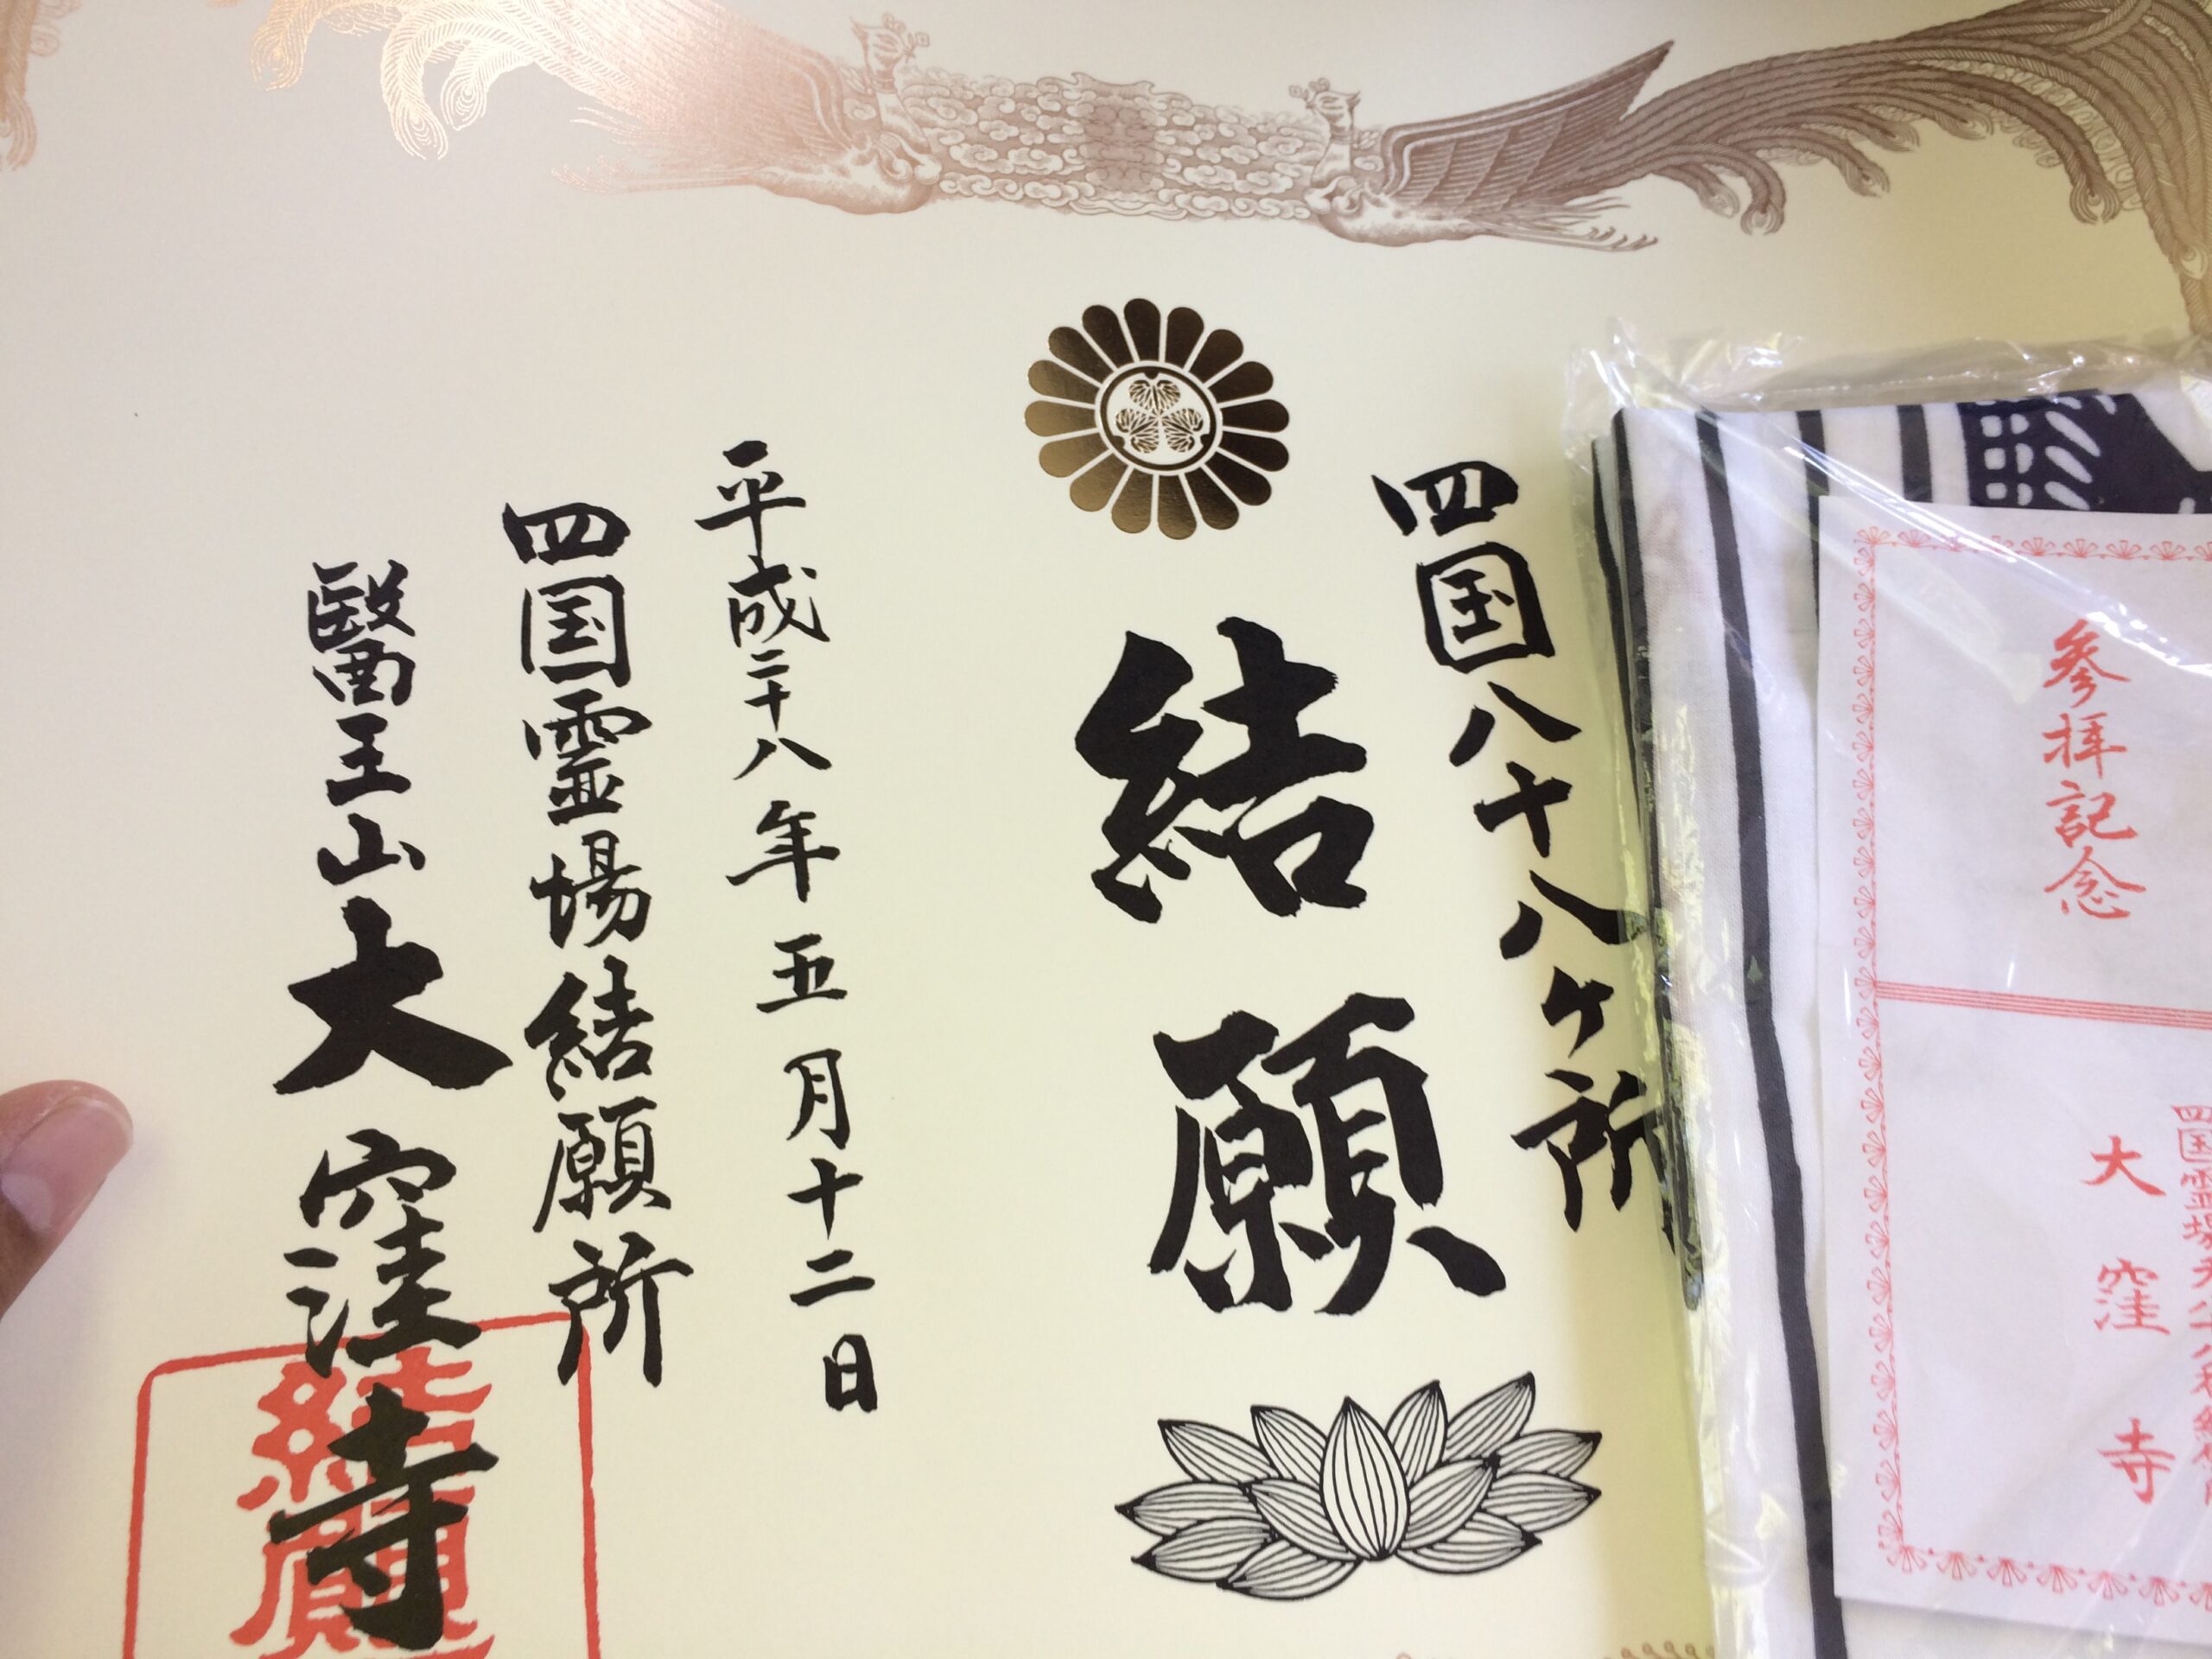 四国八十八ヶ所
結願
平成二十八年五月十二日
四国霊場結願所
醫王山大窪寺
結願
参拝記念
四国霊場
大窪寺